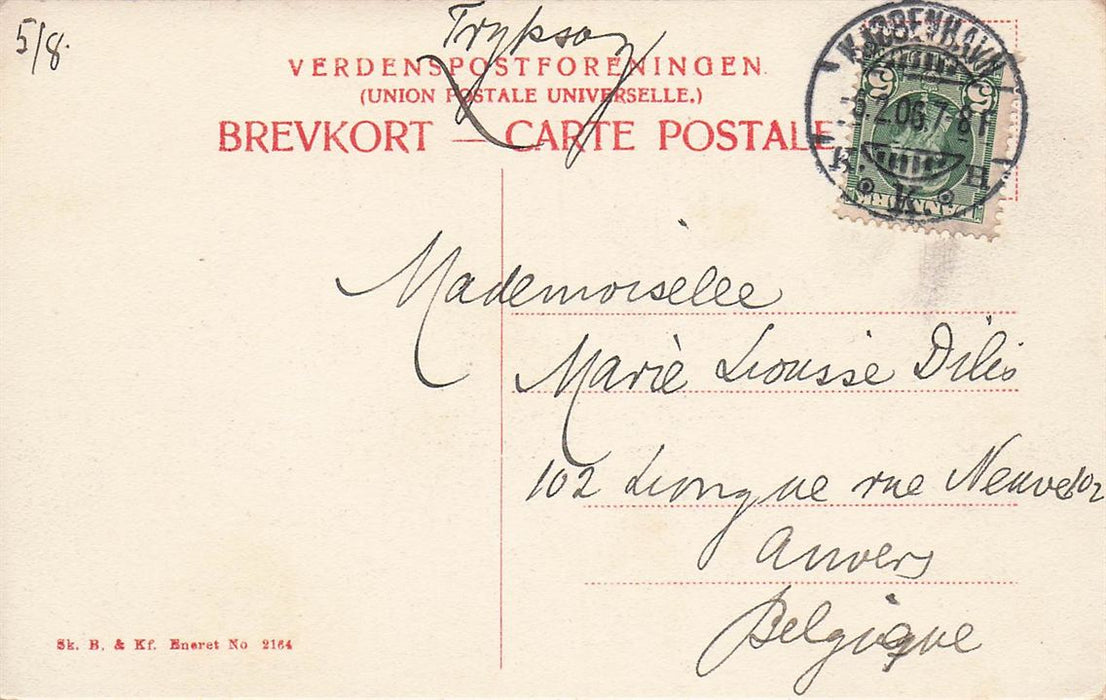 5/8.
Tryksag
VERDENSPOSTFORENINGEN.
(UNION POSTALE UNIVERSELLE.)
BREVKORT — CARTE POSTALE
KJØBENHAVN
5.2.06.7-8 F
K. K. B
5
DANMARK
Mademoiselle
Marie Lousse Dilis
102 Longue rue Neuve 102
Anvers
Belgique
Sk. B. & Kf. Eneret No 2164